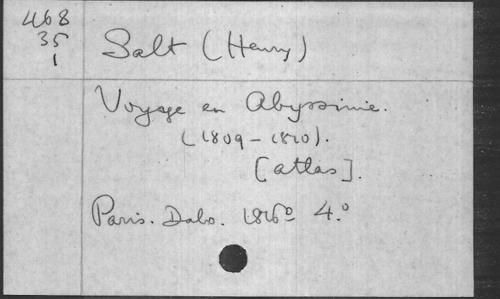 468
35
1
Salt (Henry)
Voyage en Abyssinie.
(1809-1810).
[atlas].
Paris. 4.°